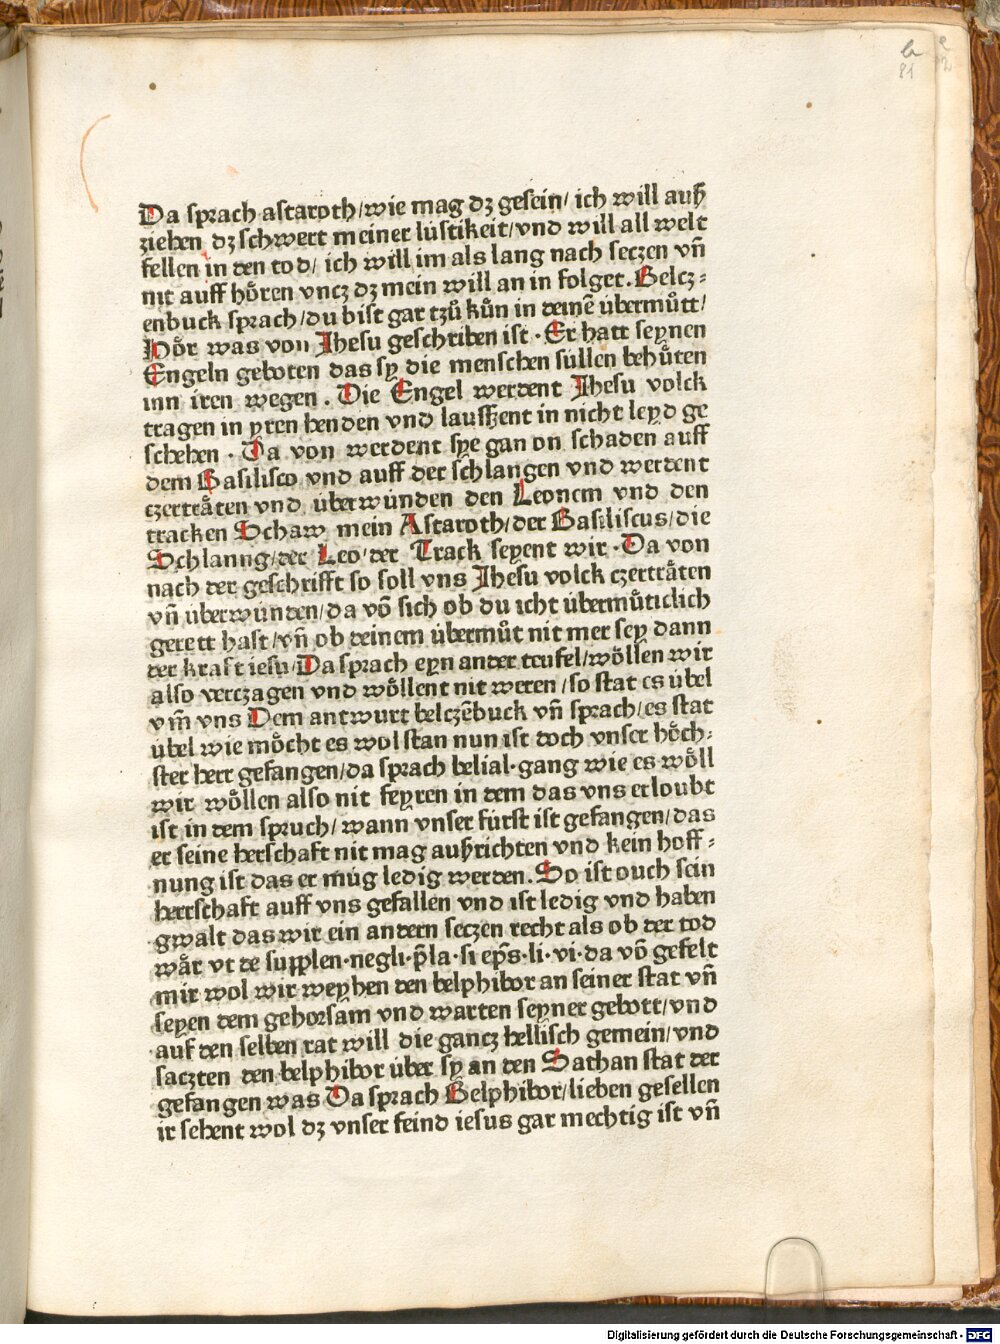 Da sprach astaroth/wie mag dz gesein/ ich will auß
ziehen dz schwert meiner lustikeit/vnd will all welt
fellen in den tod/ ich will im als lang nach seczen vñ
nit auff hören vncz dz mein will an in folget. Belcz⸗
enbuck sprach/du bist gar tzů kůn in deinē übermůtt/
Hör was von Jhesu geschriben ist · Er hatt seynen
Engeln geboten das sy die menschen sullen behůten
inn iren wegen . Die Engel werdent Jhesu volck
tragen in yren henden vnd laussent in nicht leyd ge
schehen · Da von werdent sye gan on schaden auff
dem Basilisco vnd auff der schlangen vnd werdent
czerträten vnd überwunden den Leonem vnd den
tracken Schaw mein Astaroth/der Basiliscus/die
Schlanng/der Leo/der Track seyent wir · Da von
nach der geschrifft so soll vns Jhesu volck czerträten
vñ überwunden/da vō sich ob du icht übermůticlich
gerett hast/vñ ob deinem übermůt nit mer sey dann
der kraft iesu/Da sprach eyn ander teufel/wöllen wir
also verczagen vnd wöllent nit weren/so stat es übel
vm̄ vns Dem antwurt belczēbuck vñ sprach/es stat
übel wie möcht es wol stan nun ist doch vnser höch⸗
ster herr gefangen/da sprach belial·gang wie es wöll
wir wöllen also nit feyren in dem das vns erloubt
ist in dem spruch/ wann vnser fürst ist gefangen/das
er seine herschaft nit mag außrichten vnd kein hoff⸗
nung ist das er müg ledig werden. So ist ouch sein
herrschaft auff vns gefallen vnd ist ledig vnd haben
gwalt das wir ein andern seczen recht als ob der tod
wär vt de supplen·negli·p̄la·si ep̄s·li·vi·da vō gefelt
mir wol wir weyhen den belphibor an seiner stat vñ
seyen dem gehorsam vnd warten seyner gebott/vnd
auf den selben rat will die gancz hellisch gemein/vnd
saczten den belphibor über sy an den Sathan stat der
gefangen was Da sprach Belphibor/lieben gesellen
ir sehent wol dz vnser feind iesus gar mechtig ist vñ
81
Digitalisierung gefördert durch die Deutsche Forschungsgemeinschaft - DFG